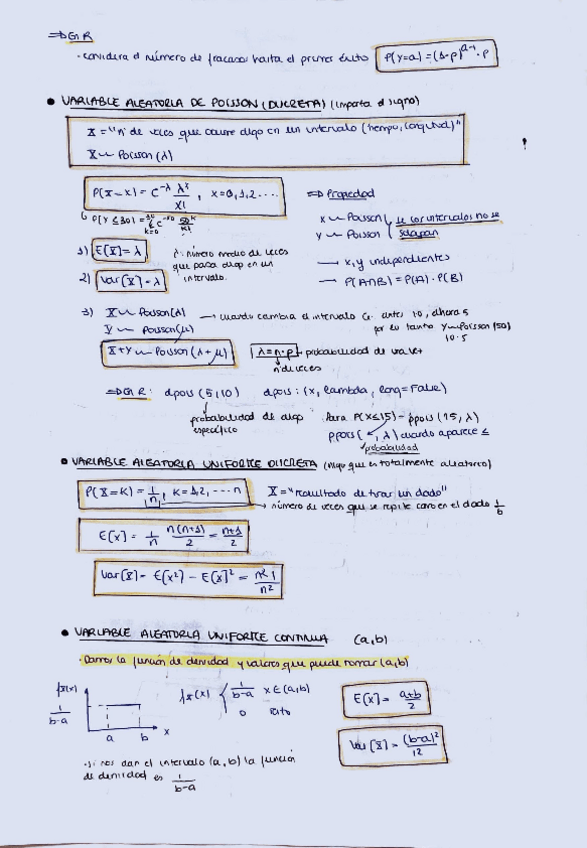 ⇒ EN R
· considera el número de fracasos hasta el primer éxito P(Y=a) = (1-p)^{a-1} · p
• VARIABLE ALEATORIA DE POISSON (DISCRETA) (importa el signo)
X = "nº de veces que ocurre algo en un intervalo (tiempo, longitud)"
X ~ Poisson (λ)
P(X=x) = e^{-λ} λ^x / x! , x=0,1,2.... ⇒ Propiedad
x ~ Poisson si los intervalos no se
y ~ Poisson solapan
1) E[X] = λ λ: número medio de veces
que pasa algo en un
intervalo.
→ x, y independientes
2) Var[X] = λ → P(A∩B) = P(A) · P(B)
3) X ~ Poisson(λ) → cuando cambia el intervalo antes 10, ahora 5
Y ~ Poisson(μ) por lo tanto Y ~ Poisson (50)
10·5
X+Y ~ Poisson (λ+μ) λ = n·p → probabilidad de una vez
nº de veces
⇒ EN R: dpois (5,10) dpois: (x, lambda, log=False)
probabilidad de algo Para P(X≤15) - ppois (15, λ)
específico ppois( , λ) cuando aparece ≤
probabilidad
• VARIABLE ALEATORIA UNIFORME DISCRETA (Algo que es totalmente aleatorio)
P(X=K) = 1/n , K=1,2, ... n X = "resultado de tirar un dado"
→ número de veces que se repite cara en el dado 1/6
E[x] = 1/n n(n+1)/2 = n+1/2
Var[X] = E(x²) - E[X]² = n²-1/n²
• VARIABLE ALEATORIA UNIFORME CONTINUA (a,b)
· Damos la función de densidad y valores que puede tomar (a,b)
fx(x) fx(x) { 1/b-a x∈(a,b) E[x] = a+b/2
1/b-a 0 resto
a b x Var[X] = (b-a)²/12
· si nos dan el intervalo (a,b) la función
de densidad es 1/b-a